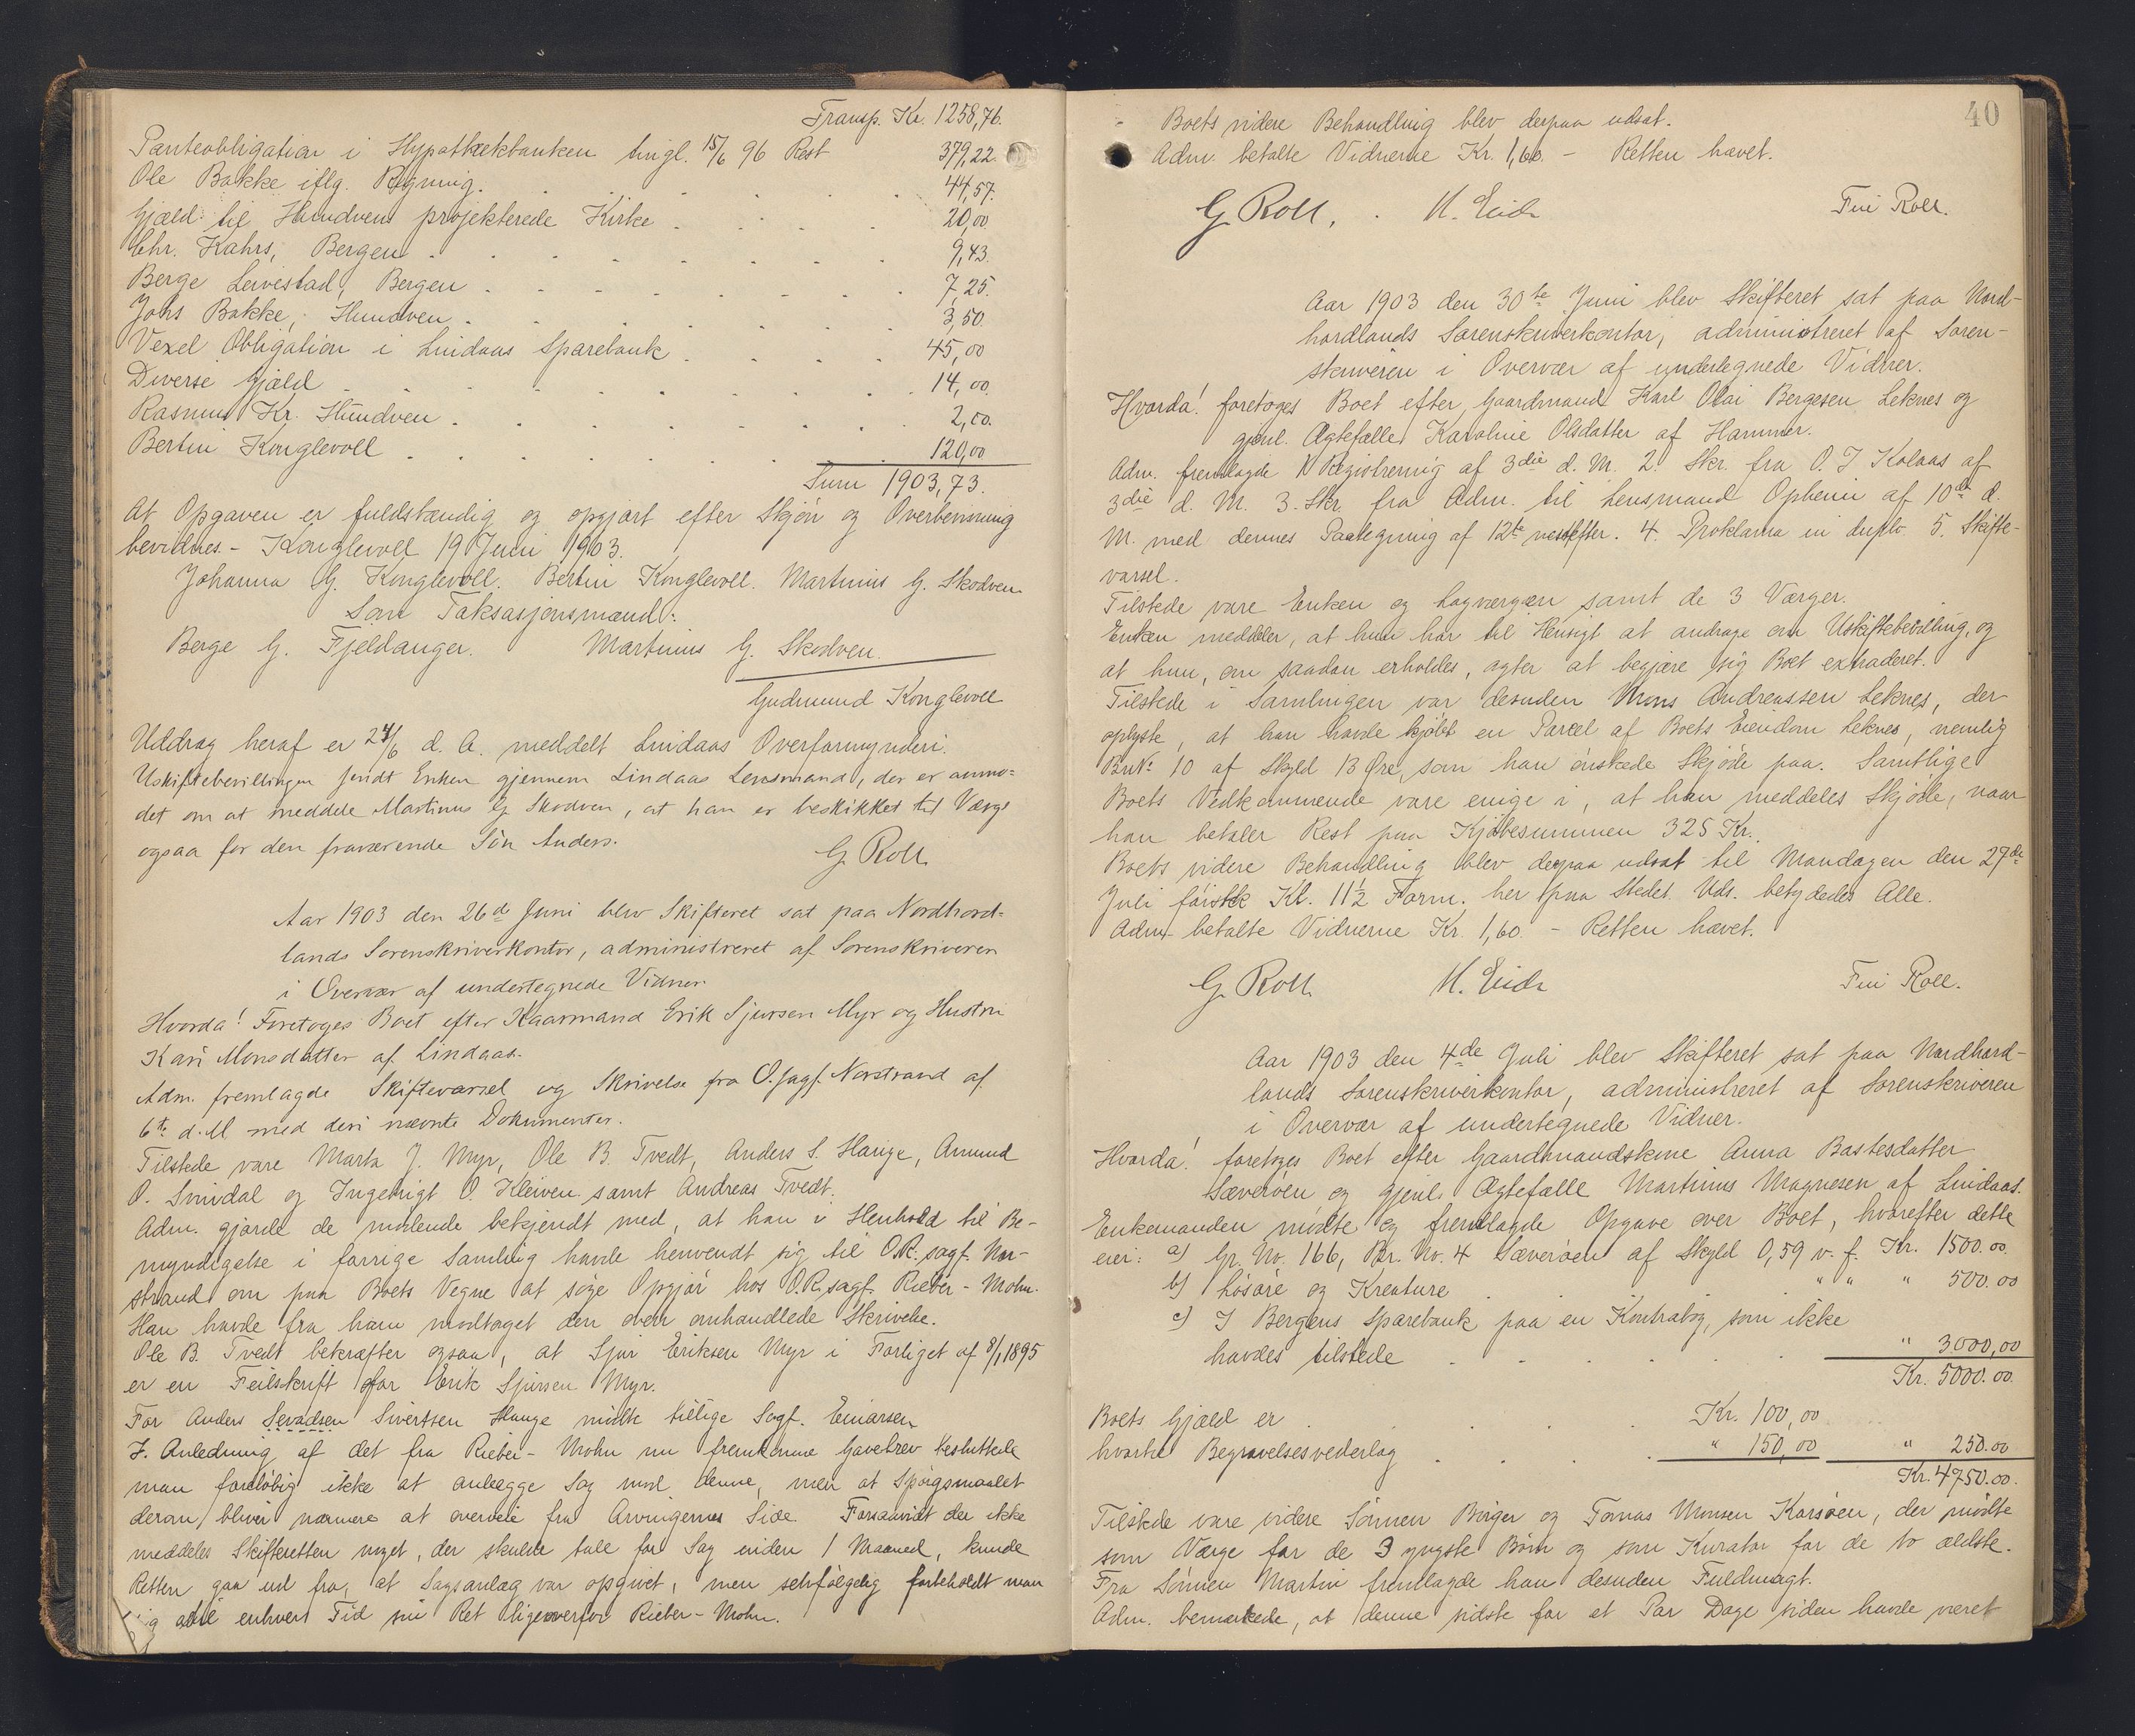 Transp. Kr. 1258,76.
Panteobligation i Hypothekbanken tingl. 15/6 96 Rest 379,22.
Ole Bakke iflg. Regning. 44,57.
Gjæld til Hundven projekterede Kirke 20,00
Chr. Kahrs, Bergen 9,43.
Berge Leivestad, Bergen 7,25.
Johs Bakke, Hundven 3,50.
Vexel Obligation i Lindaas Sparebank 45,00
Diverse Gjæld 14,00.
Rasmus Kr. Hundven 2,00.
Bertin Konglevoll 120,00
Sum 1903,73.
At Opgaven er fuldstændig og opgjort efter Skjön og Overbevisning
bevidnes. - Konglevoll 19 Juni 1903.
Johanna G. Konglevoll. Bertin Konglevoll. Martinius G. Skodven
Som Taksasjonsmænd:
Berge G. Fjeldanger. Martinius G. Skodven.
Gudmund Konglevoll
Uddrag heraf er 24/6 d. A. meddelt Lindaas Overformynderi.
Uskiftebevillingen sendt Enken gjennem Lindaas Lensmand, der er anmo=
det om at meddele Martinus G. Skodven, at han er beskikket til Værge
ogsaa for den fraværende Sön Anders.
G. Roll.
Aar 1903 den 26de Juni blev Skifteret sat paa Nordhord=
lands Sorenskriverkontor, administreret af Sorenskriveren
i Overvær af undertegnede Vidner.
Hvorda! Foretoges Boet efter Kaarmand Erik Sjursen Myr og Hustru
Kari Monsdatter af Lindaas.
Adm. fremlagde Skiftevarsel og Skrivelse fra O.sagf. Norstrand af
6te d. M med deri nævnte Dokumenter.
Tilstede vare Marta J. Myr, Ole B. Tvedt, Anders S. Hauge, Amund
O. Snivdal og Ingebrigt O. Kleiven samt Andreas Tvedt.
Adm. gjorde de mödende bekjendt med, at han i Henhold til Be-
myndigelse i forrige Samling havde henvendt sig til O.R.sagf. Nor-
strand om paa Boets Vegne at söge Opgjör hos O.R.sagf. Rieber-Mohn.
Han havde fra ham modtaget den oven omhandlede Skrivelse.
Ole B. Tvedt bekræfter ogsaa, at Sjur Eriksen Myr i Forliget af 8/1 1895
er en Feilskrift for Erik Sjursen Myr.
For Anders Sevadsen Sivertsen Hauge mödte tillige Sagf. Einarsen
I Anledning af det fra Rieber-Mohn nu fremkomne Gavebrev besluttede
man foreløbig ikke at anlægge Sag mod denne, men at Spörgsmaalet
derom bliver nærmere at overveie fra Arvingernes Side. Forsaavidt der ikke
meddeles Skifteretten noget, der skulde tale for Sag inden 1 Maaned, kunde
Retten gaa ud fra, at Sagsanlæg var opgivet, men selvfølgelig forbeholdt man
sig til enhver Tid sin Ret ligeoverfor Rieber-Mohn.
40
Boets videre Behandling blev derpaa udsat.
Adm. betalte Vidnerne Kr. 1,60. - Retten hævet.
G Roll. M. Eide Fin Roll.
Aar 1903 den 30te Juni blev Skifteret sat paa Nord-
hordlands Sorenskriverkontor, administreret af Soren-
skriveren i Overvær af undertegnede Vidner.
Hvorda! foretoges Boet efter Gaardmand Karl Olai Bergesen Leknes og
gjenl. Ægtefælle Karoline Olsdatter af Hammer.
Adm. fremlagde 1 Registrering af 3die d. M. 2. Skr. fra O. J Kolaas af
3die d. M. 3. Skr. fra Adm. til Lensmand Opheim af 10de d.
M. med dennes Paategning af 12te næstefter. 4. Proklama in duplo 5. Skifte-
varsel.
Tilstede vare Enken og Lagværgen samt de 3 Værger.
Enken meddeler, at hun har til Hensigt at andrage om Uskiftebevilling, og
at hun, om saadan erholdes, agter at begjære sig Boet extraderet.
Tilstede i Samlingen var desuden Mons Andreassen Leknes, der
oplyste, at han havde kjöbt en Parcel af Boets Eiendom Leknes, nemlig
BrNo 10 af Skyld 13 Øre, som han önskede Skjöde paa. Samtlige
Boets Vedkommende vare enige i, at han meddeles Skjöde, naar
han betaler Rest paa Kjöbesummen 325 Kr.
Boets videre Behandling blev derpaa udsat til Mandagen den 27de
Juli förstk Kl. 11½ Form. her paa Stedet. Uds. betydedes Alle.
Adm. betalte Vidnerne Kr. 1,60. - Retten hævet.
G. Roll. M. Eide Fin Roll.
Aar 1903 den 4de Juli blev Skifteret sat paa Nordhord-
lands Sorenskriverkontor, administreret af Sorenskriveren
i Overvær af undertegnede Vidner.
Hvorda! foretoges Boet efter Gaardmandskone Anna Bastesdatter
Sæveröen og gjenl. Ægtefælle Martinus Magnesen af Lindaas.
Enkemanden mödte og fremlagde Opgave over Boet, hvorefter dette
eier: a) Gr. No. 166, Br. No. 4 Sæveröen af Skyld 0,59 v. f. Kr. 1500.00.
b) Lösöre og Kreature " " " 500.00
c) I Bergens Sparebank paa en Kontrabog, som ikke
havdes tilstede " 3000,00
Kr. 5000.00.
Boets Gjæld er Kr. 100,00
hvortil Begravelsesvederlag " 150,00 " 250.00
Kr. 4750.00.
Tilstede vare videre Sönnen Börger og Tomas Monsen Korsöen, der mödte
som Værge for de 3 yngste Börn og som Kurator for de to ældste.
Fra Sönnen Martin fremlagde han desuden Fuldmagt.
Adm. bemærkede, at denne sidste for et Par Dage siden havde været